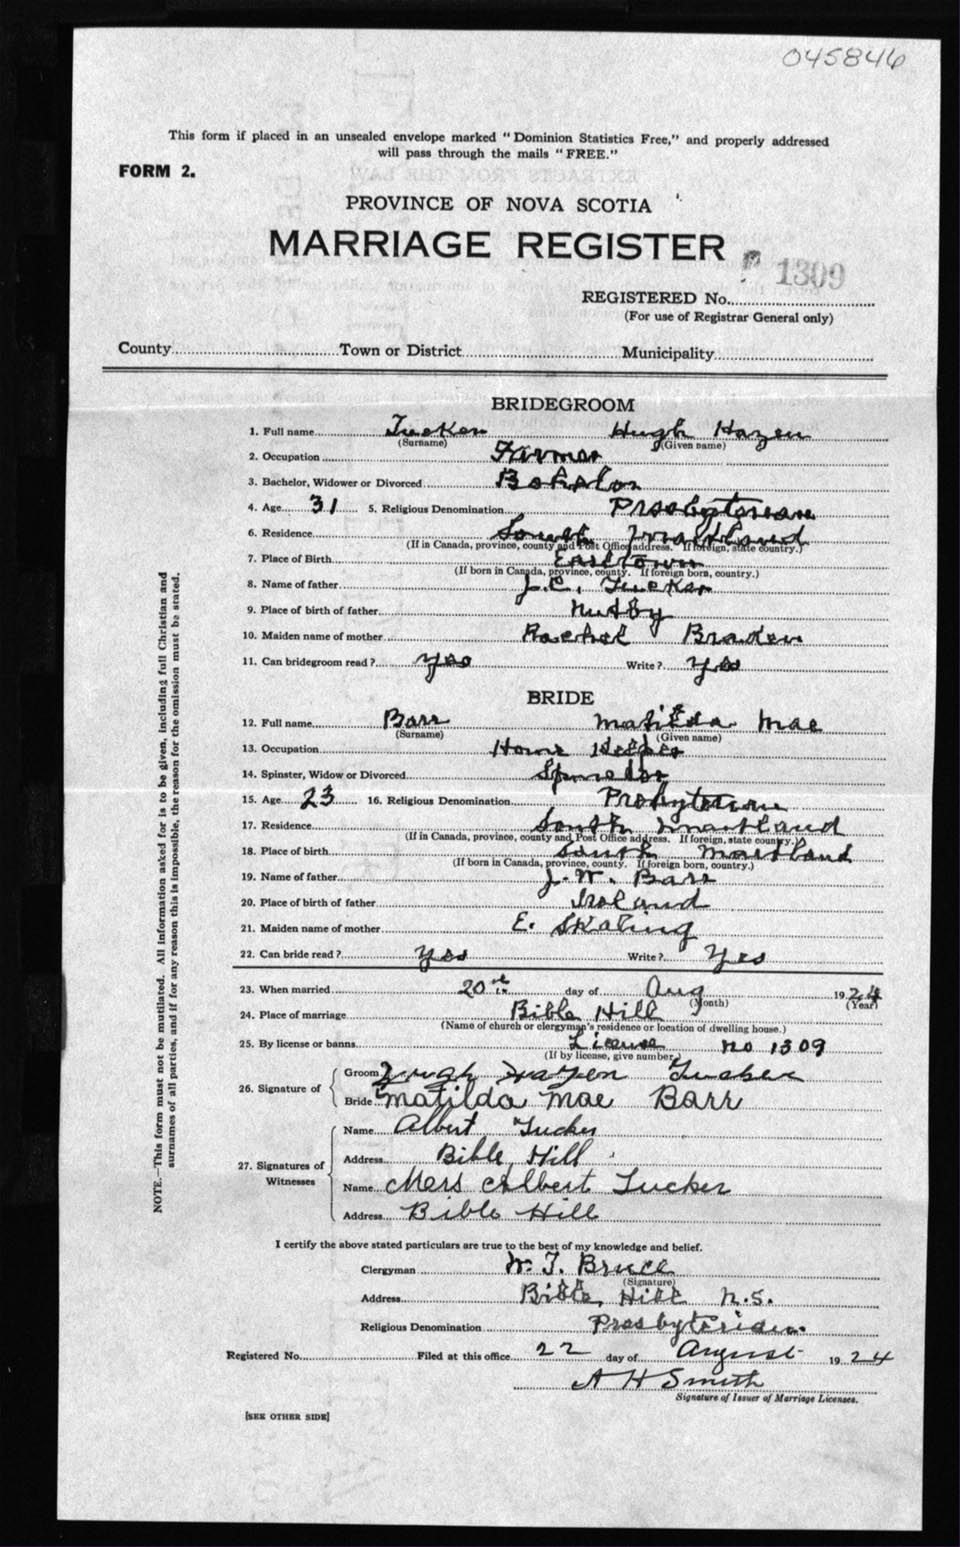 045846
This form if placed in an unsealed envelope marked "Dominion Statistics Free," and properly addressed
will pass through the mails "FREE."
FORM 2.
PROVINCE OF NOVA SCOTIA
MARRIAGE REGISTER
1309
REGISTERED No.
(For use of Registrar General only)
County Town or District Municipality
BRIDEGROOM
1. Full name Tucker Hugh Hazen
(Surname) (Given name)
2. Occupation Farmer
3. Bachelor, Widower or Divorced Bohelor
4. Age 31 5. Religious Denomination Presbyterian
6. Residence South Maitland
(If in Canada, province, county and Post Office address. If foreign, state country.)
7. Place of Birth Earltown
(If born in Canada, province, county. If foreign born, country.)
8. Name of father J. C. Tucker
9. Place of birth of father Nutby
10. Maiden name of mother Rachel Braden
11. Can bridegroom read? yes Write? yes
BRIDE
12. Full name Barr Matilda Mae
(Surname) (Given name)
13. Occupation House Keeper
14. Spinster, Widow or Divorced
15. Age 23 16. Religious Denomination Presbyterian
17. Residence South Maitland
(If in Canada, province, county and Post Office address. If foreign, state country.)
18. Place of birth South Maitland
(If born in Canada, province, county. If foreign born, country.)
19. Name of father J. W. Barr
20. Place of birth of father Ireland
21. Maiden name of mother E. Skating
22. Can bride read? Yes Write? Yes
23. When married 20th day of Aug 1924
(Month) (Year)
24. Place of marriage Bible Hill
(Name of church or clergyman's residence or location of dwelling house.)
25. By license or banns License no 1309
(If by license, give number.)
26. Signature of
Groom Hugh Hazen Tucker
Bride Matilda Mae Barr
27. Signatures of Witnesses
Name Albert Tucker
Address Bible Hill
Name Mers Albert Tucker
Address Bible Hill
I certify the above stated particulars are true to the best of my knowledge and belief.
Clergyman W. T. Bruce
(Signature)
Address Bible Hill N.S.
Religious Denomination Presbyterian
Registered No. Filed at this office 22 day of August 1924
A H Smith
Signature of Issuer of Marriage Licenses.
[SEE OTHER SIDE]
NOTE.—This form must not be mutilated. All information asked for is to be given, including full Christian and
surnames of all parties, and if for any reason this is impossible, the reason for the omission must be stated.